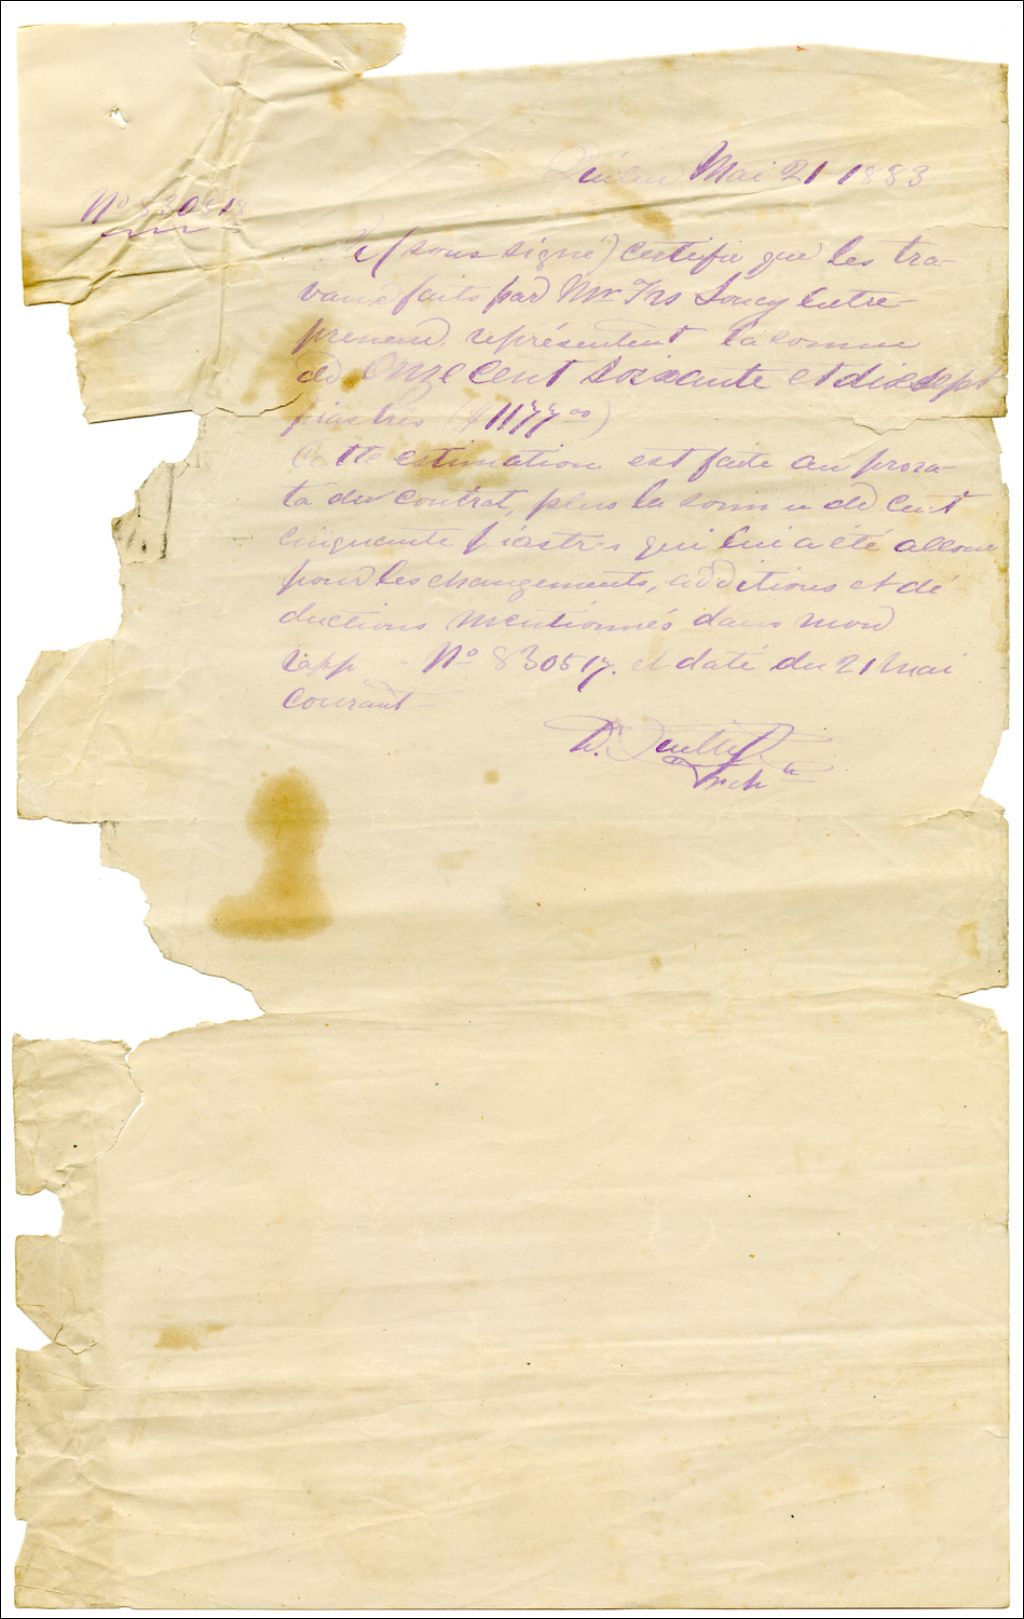 Québec Mai 21 1883
No 830518
Je (sous signé) certifie que les tra-
vaux faits par Mr Frs Soucy Entre-
preneur représentent la somme
de Onze cent soixante et dix sept
piastres ($ 1177 00)
Cette estimation est faite au prora-
ta du contrat, plus la somme de cent
cinquante piastres qui lui a été alloué
pour les changements, additions et dé
ductions mentionnés dans mon
rapp - No 830517. et daté du 21 Mai
courant -
D. Ouellet
Archte